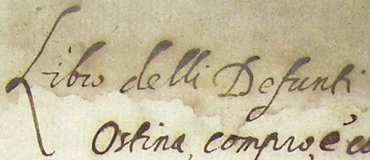 Libro delli Defunti
Ostina, comprò è